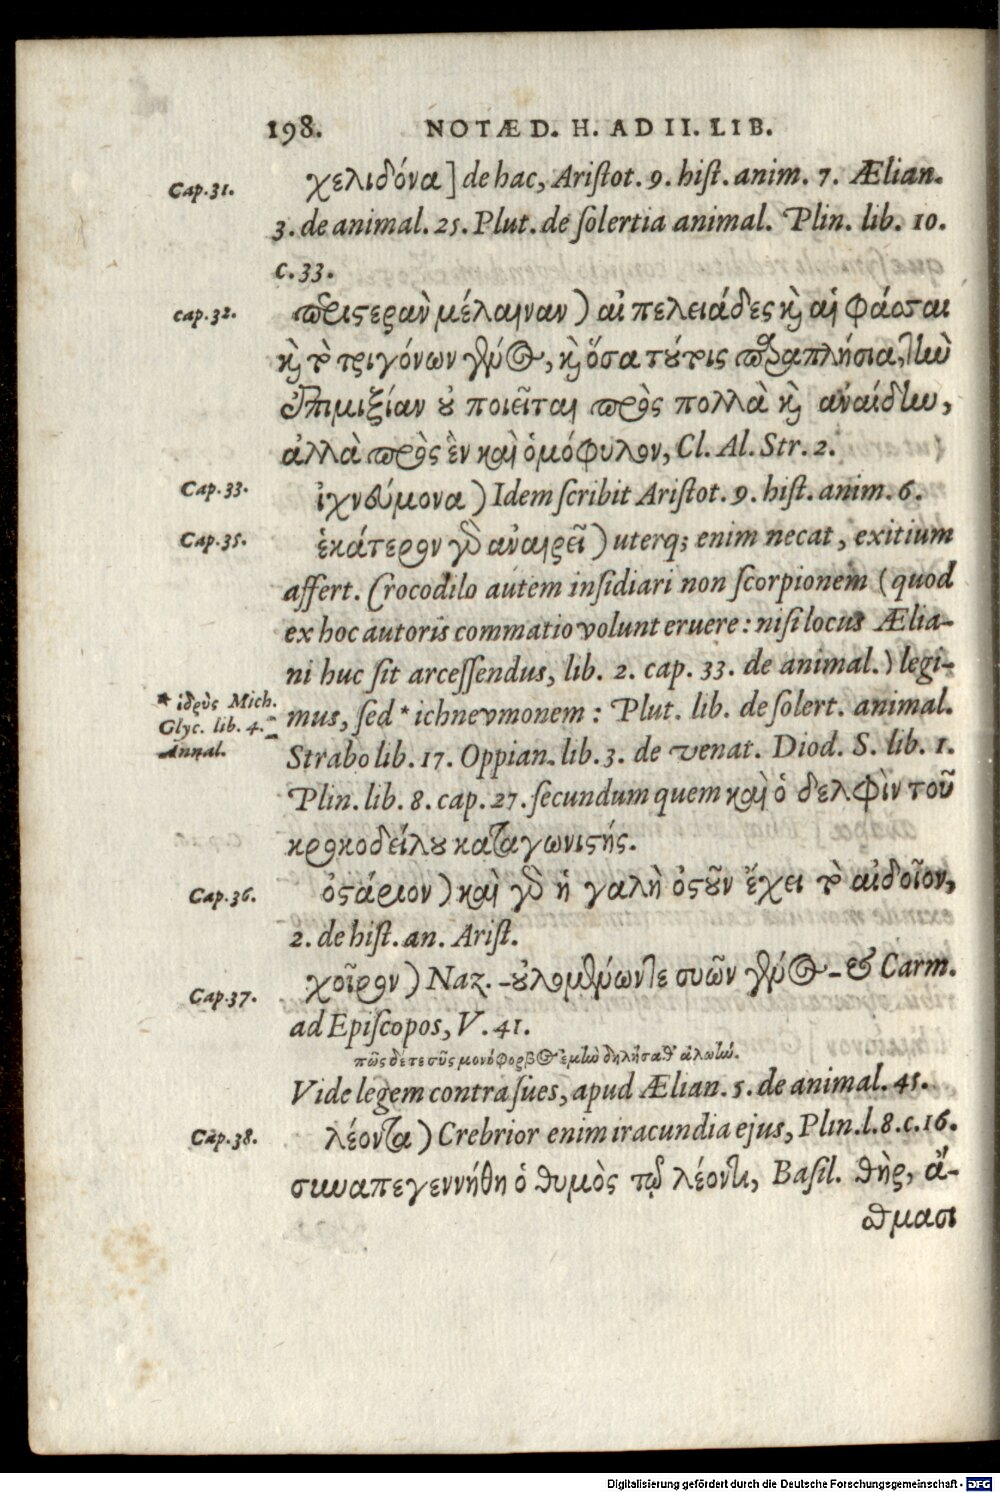 198. NOTÆ D. H. AD II. LIB.
Cap. 31. χελιδόνα] de hac, Aristot. 9. hist. anim. 7. Ælian.
3. de animal. 25. Plut. de solertia animal. Plin. lib. 10.
c. 33.
cap. 32. περιστερὰν μέλαιναν) αἱ πελειάδες καὶ αἱ φάσσαι
καὶ τὸ τριγόνων γένος, καὶ ὅσα τούτοις παραπλήσια, τὴν
ἐπιμιξίαν οὐ ποιεῖται πρὸς πολλὰ καὶ ἀναίδην,
ἀλλὰ πρὸς ἓν καὶ ὁμόφυλον, Cl. Al. Str. 2.
Cap. 33. ἰχνεύμονα) Idem scribit Aristot. 9. hist. anim. 6.
Cap. 35. ἑκάτερον γὸ ἀναιρεῖ) uterq; enim necat, exitium
affert. Crocodilo autem insidiari non scorpionem (quod
ex hoc autoris commatio volunt eruere: nisi locus Ælia-
ni huc sit arcessendus, lib. 2. cap. 33. de animal.) legi-
mus, sed * ichnevmonem: Plut. lib. de solert. animal.
* ἱδρὺς Mich.
Glyc. lib. 4.
Annal.
Strabo lib. 17. Oppian. lib. 3. de venat. Diod. S. lib. 1.
Plin. lib. 8. cap. 27. secundum quem καὶ ὁ δελφὶν τοῦ
κροκοδείλου καταγωνιστής.
Cap. 36. ὀστάριον) καὶ γὸ ἡ γαλῆ ὀστοῦν ἔχει τὸ αἰδοῖον,
2. de hist. an. Arist.
Cap. 37. χοῖρον) Naz. - οὐλομένωντε συῶν γένος - & Carm.
ad Episcopos, V. 41.
Vide legem contra sues, apud Ælian. 5. de animal. 45.
Cap. 38. λέοντα) Crebrior enim iracundia ejus, Plin. l. 8. c. 16.
συναπεγεννήθη ὁ θυμὸς τῷ λέοντι, Basil. θὴρ, ἄ-
σθμασι
Digitalisierung gefördert durch die Deutsche Forschungsgemeinschaft - DFG